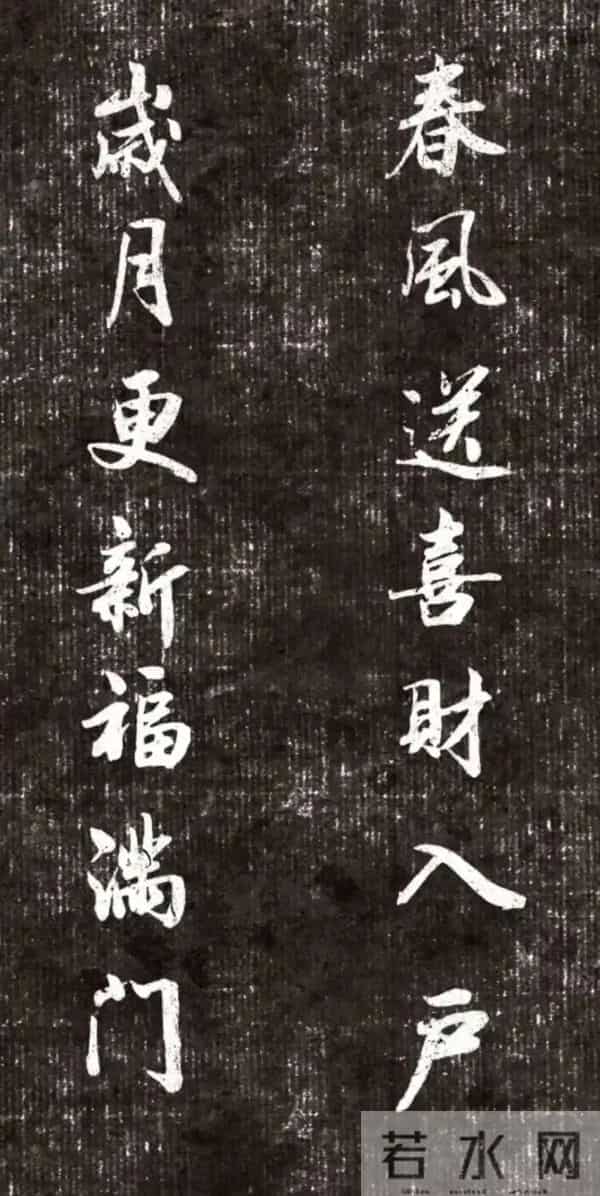 春風送喜財入戶
歲月更新福滿门
若水网